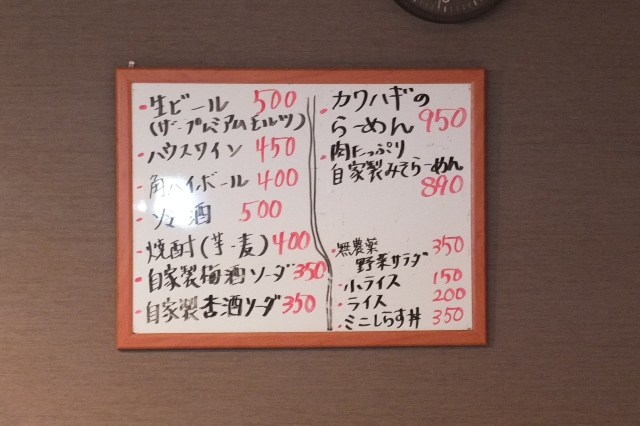 ・生ビール 500
(ザ・プレミアムモルツ)
・ハウスワイン 450
・角ハイボール 400
・冷酒 500
・焼酎(芋・麦) 400
・自家製梅酒ソーダ 350
・自家製杏酒ソーダ 350
・カワハギの
らーめん 950
・肉たっぷり
自家製みそらーめん
890
・無農薬
野菜サラダ 350
・小ライス 150
・ライス 200
・ミニしらす丼 350